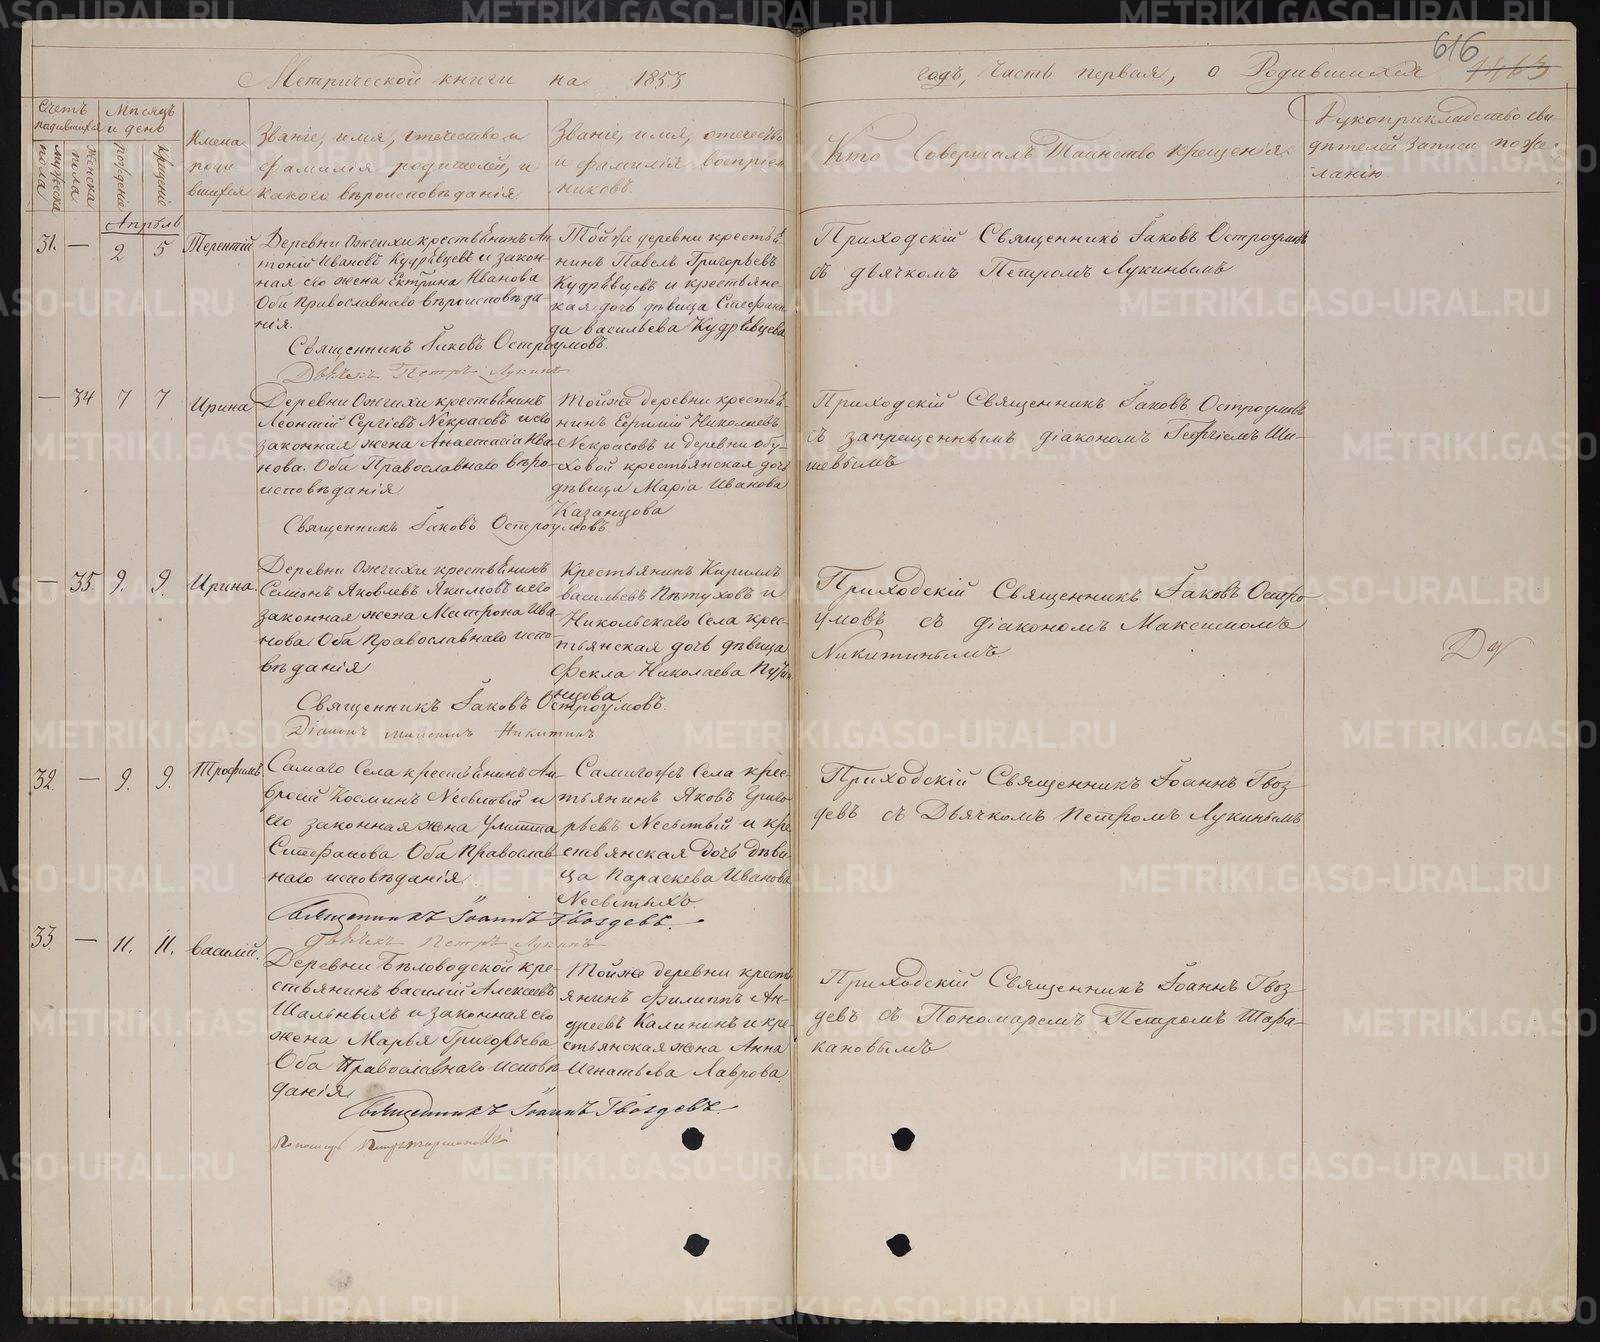 Метрической книги на 1853
годъ, Часть первая, о Родившихся 1463
616
Счетъ родившихся
мужеска пола
женска пола
Мѣсяцъ и день
рожденіе
крещеніе
Имена роди вшихся
Званіе, имя, отечество и
фамилія родителей, и
какого вѣроисповѣданія
Званіе, имя, отечество
и фамилія воспріем
никовъ
Кто Совершалъ Таинство крещенія
Рукоприкладство сви
дѣтелей записи по же-
ланію
Апрѣль
31. — 2 5 Терентій
Деревни Ожгихи крестьянинъ Ан
тоній Ивановъ Кудрявцевъ и закон-
ная его жена Иванова
Оба Православнаго вѣроисповѣда
нія.
Священникъ Іаковъ Остроумовъ.
Дьячекъ Петръ Лукинъ
Той же деревни крестья-
нинъ Павелъ Григорьевъ
Кудрявцевъ и крестьянс-
кая дочь дѣвица Стефани-
да васильева Кудрявцева
Приходскій Священникъ Іаковъ Остроумовъ
съ дьячкомъ Петромъ Лукинымъ
— 34 7 7 Ирина
Деревни Ожгихи крестьянинъ
Леонтій Сергіевъ Некрасовъ и его
законная жена Анастасіа Ива
нова. Оба Православнаго вѣро-
исповѣданія
Священникъ Іаковъ Остроумовъ
Тойже деревни крестья-
нинъ Ефимій Николаевъ
Некрасовъ и деревни Обу-
ховой крестьянская дочь
дѣвица Маріа Иванова
Казанцова
Приходскій Священникъ Іаковъ Остроумовъ
съ запрещеннымъ діакономъ Георгіемъ Ши-
шевымъ
— 35 9. 9. Ирина
Деревни Ожгихи крестьянинъ
Семіонъ Яковлевъ Якимовъ и его
законная жена Матрона Ива
нова Оба Православнаго испо-
вѣданія
Священникъ Іаковъ Остроумовъ.
Діаконъ Максимъ Никитинъ
Крестьянинъ Кирилъ
васильевъ Пѣтуховъ и
Никольскаго Села крес-
тьянская дочь дѣвица
Фекла Николаева
Приходскій Священникъ Іаковъ Остро-
умовъ съ діакономъ Максимомъ
Никитинымъ
32. — 9. 9. Трофимъ
Самаго Села крестьянинъ Ам-
вросій Косминъ Несытый и
его законная жена Улитта
Стефанова Оба Православ
наго исповѣданія
Священникъ Іоаннъ Гвоздевъ.
Дьячекъ Петръ Лукинъ
Самагожъ Села крес-
тьянинъ Яковъ Григо
рьевъ Несытый и кре
стьянская дочь дѣви-
ца Параскева Иванова
Несытыхъ
Приходскій Священникъ Іоаннъ Гвоз
девъ съ Дьячкомъ Петромъ Лукинымъ
33. — 11. 11. василій.
Деревни Бѣловодской кре-
стьянинъ василій Алексіевъ
Шальныхъ и законная его
жена Марья Григорьева
Оба Православнаго исповѣ
данія
Священникъ Іоаннъ Гвоздевъ.
Пономарь Петръ Таракановъ
Тойже деревни кресть
янинъ Филиппъ Ан-
дреевъ Калининъ и кре-
стьянская жена Анна
Игнатьева Лаврова.
Приходскій Священникъ Іоаннъ Гвоз
девъ съ Пономаремъ Петромъ Тара-
кановымъ
METRIKI.GASO-URAL.RU